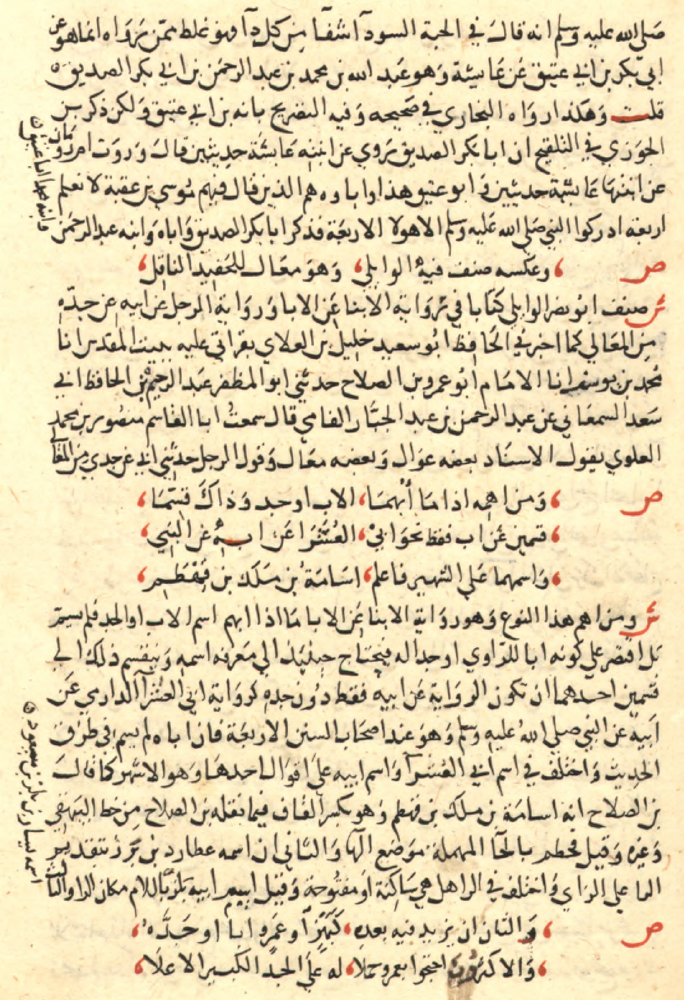 صلى الله عليه وسلم انه قال في الحبة السودآ شفآ من كل دآ فهو غلط ممن رواه انما هو عن
ابي بكر بن ابي عتيق عن عايشة وهو عبد الله بن محمد بن عبد الرحمن بن ابي بكر الصديق
قلت وهكذا رواه البخاري في صحيحه وفيه التصريح بانه بن ابي عتيق ولكن ذكر بن
الجوزي في التلقيح ان ابا بكر الصديق روي عن ابنته عايشة حديثين قال وروت ام رومان
عن ابنتها عايشة حديثين وابو عتيق هذا وابا وه هم الذين قال فيهم موسي بن عقبة لا نعلم
اربعة ادركوا النبي صلى الله عليه وسلم الا هولا الاربعة فذكر ابا بكر الصديق واباه وابنه عبد الرحمن
وابنه محمدا ابا عتيق
ص وعكسه صنف فيه الوايلي وهو معال للحفيد الناقل
ش صنف ابو نصر الوايلي كتابا في رواية الابنا عن الابا ورواية الرجل عن ابيه عن جده
من المعالي كما اخبرني الحافظ ابو سعيد خليل بن العلاي بقراتي عليه ببيت المقدس انا
محمد بن يوسف انا الامام ابو عمرو بن الصلاح حدثني ابو المظفر عبد الرحيم بن الحافظ ابي
سعد السمعاني عن عبد الرحمن بن عبد الجبار الفامي قال سمعت ابا القاسم منصور بن محمد
العلوي يقول الاسناد بعضه عوال وبعضه معال وقول الرجل حدثني ابي عن جدي من المعالي
ص ومن اهمه اذا ما ابهما الاب او جد وذاك قسما
قسمين عن اب فقط نحو ابي العشرا عن ابه عن النبي
واسمهما علي الشهير فاعلم اسامة بن ملك بن قهطم
ش ومن اهم هذا النوع وهو رواية الابنا عن الابا ما اذا ابهم اسم الاب او الجد فلم يسم
بل اقتصر علي كونه ابا للراوي او جدا له فيحتاج حينيذ الي معرفة اسمه وينقسم ذلك الي
قسمين احدهما ان تكون الرواية عن ابيه فقط دون جده كرواية ابي العشرآ الدارمي عن
ابيه عن النبي صلى الله عليه وسلم وهو عند اصحاب السنن الاربعة فان اباه لم يسم في طرق
الحديث واختلف في اسم ابي العشرآ واسم ابيه علي اقوال احدها وهو الاشهر كما قال
بن الصلاح انه اسامة بن ملك بن قهطم وهو بكسر القاف فيما نقله بن الصلاح من خط البيهقي
وغيره وقيل قحطم بالحا المهملة موضع الها والثاني ان اسمه عطارد بن برز بتقديم
الرا علي الزاي واختلف في الرا هل هي ساكنة او مفتوحة وقيل اسم ابيه بلز باللام مكان الرا والثالث
اسمه يسار بن بلز بن مسعود
ص والثان ان يزيد فيه بعده كبهز او عمرو ابا او جده
والاكثرون احتجوا بعمرو حملا له علي الجد الكبير الاعلا